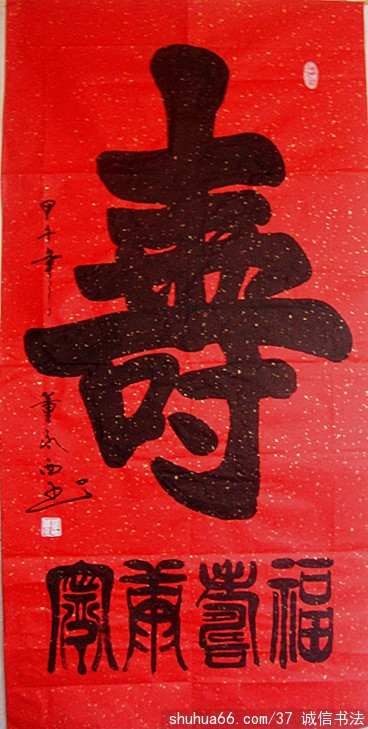 壽
福壽康寧
甲午年
董永西书
shuhua66.com/37 诚信书法